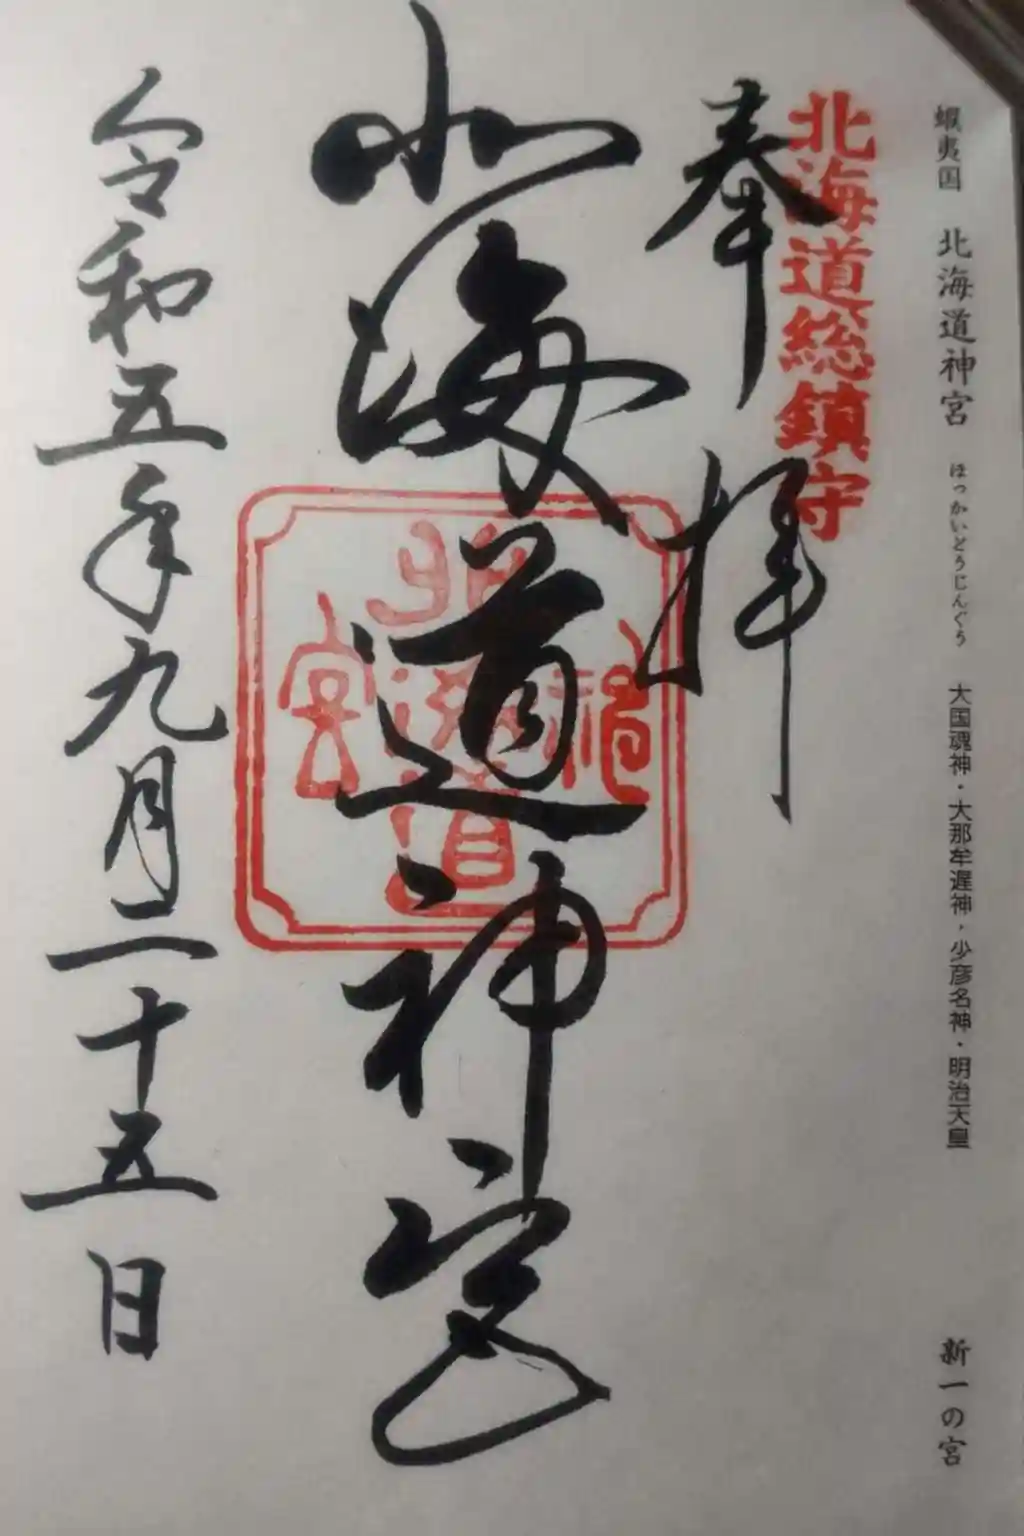 蝦夷国 北海道神宮 ほっかいどうじんぐう 大国魂神・大那牟遅神・少彦名神・明治天皇 新一の宮
北海道総鎮守
奉拝
北海道神宮
北海道神宮
令和五年九月二十五日